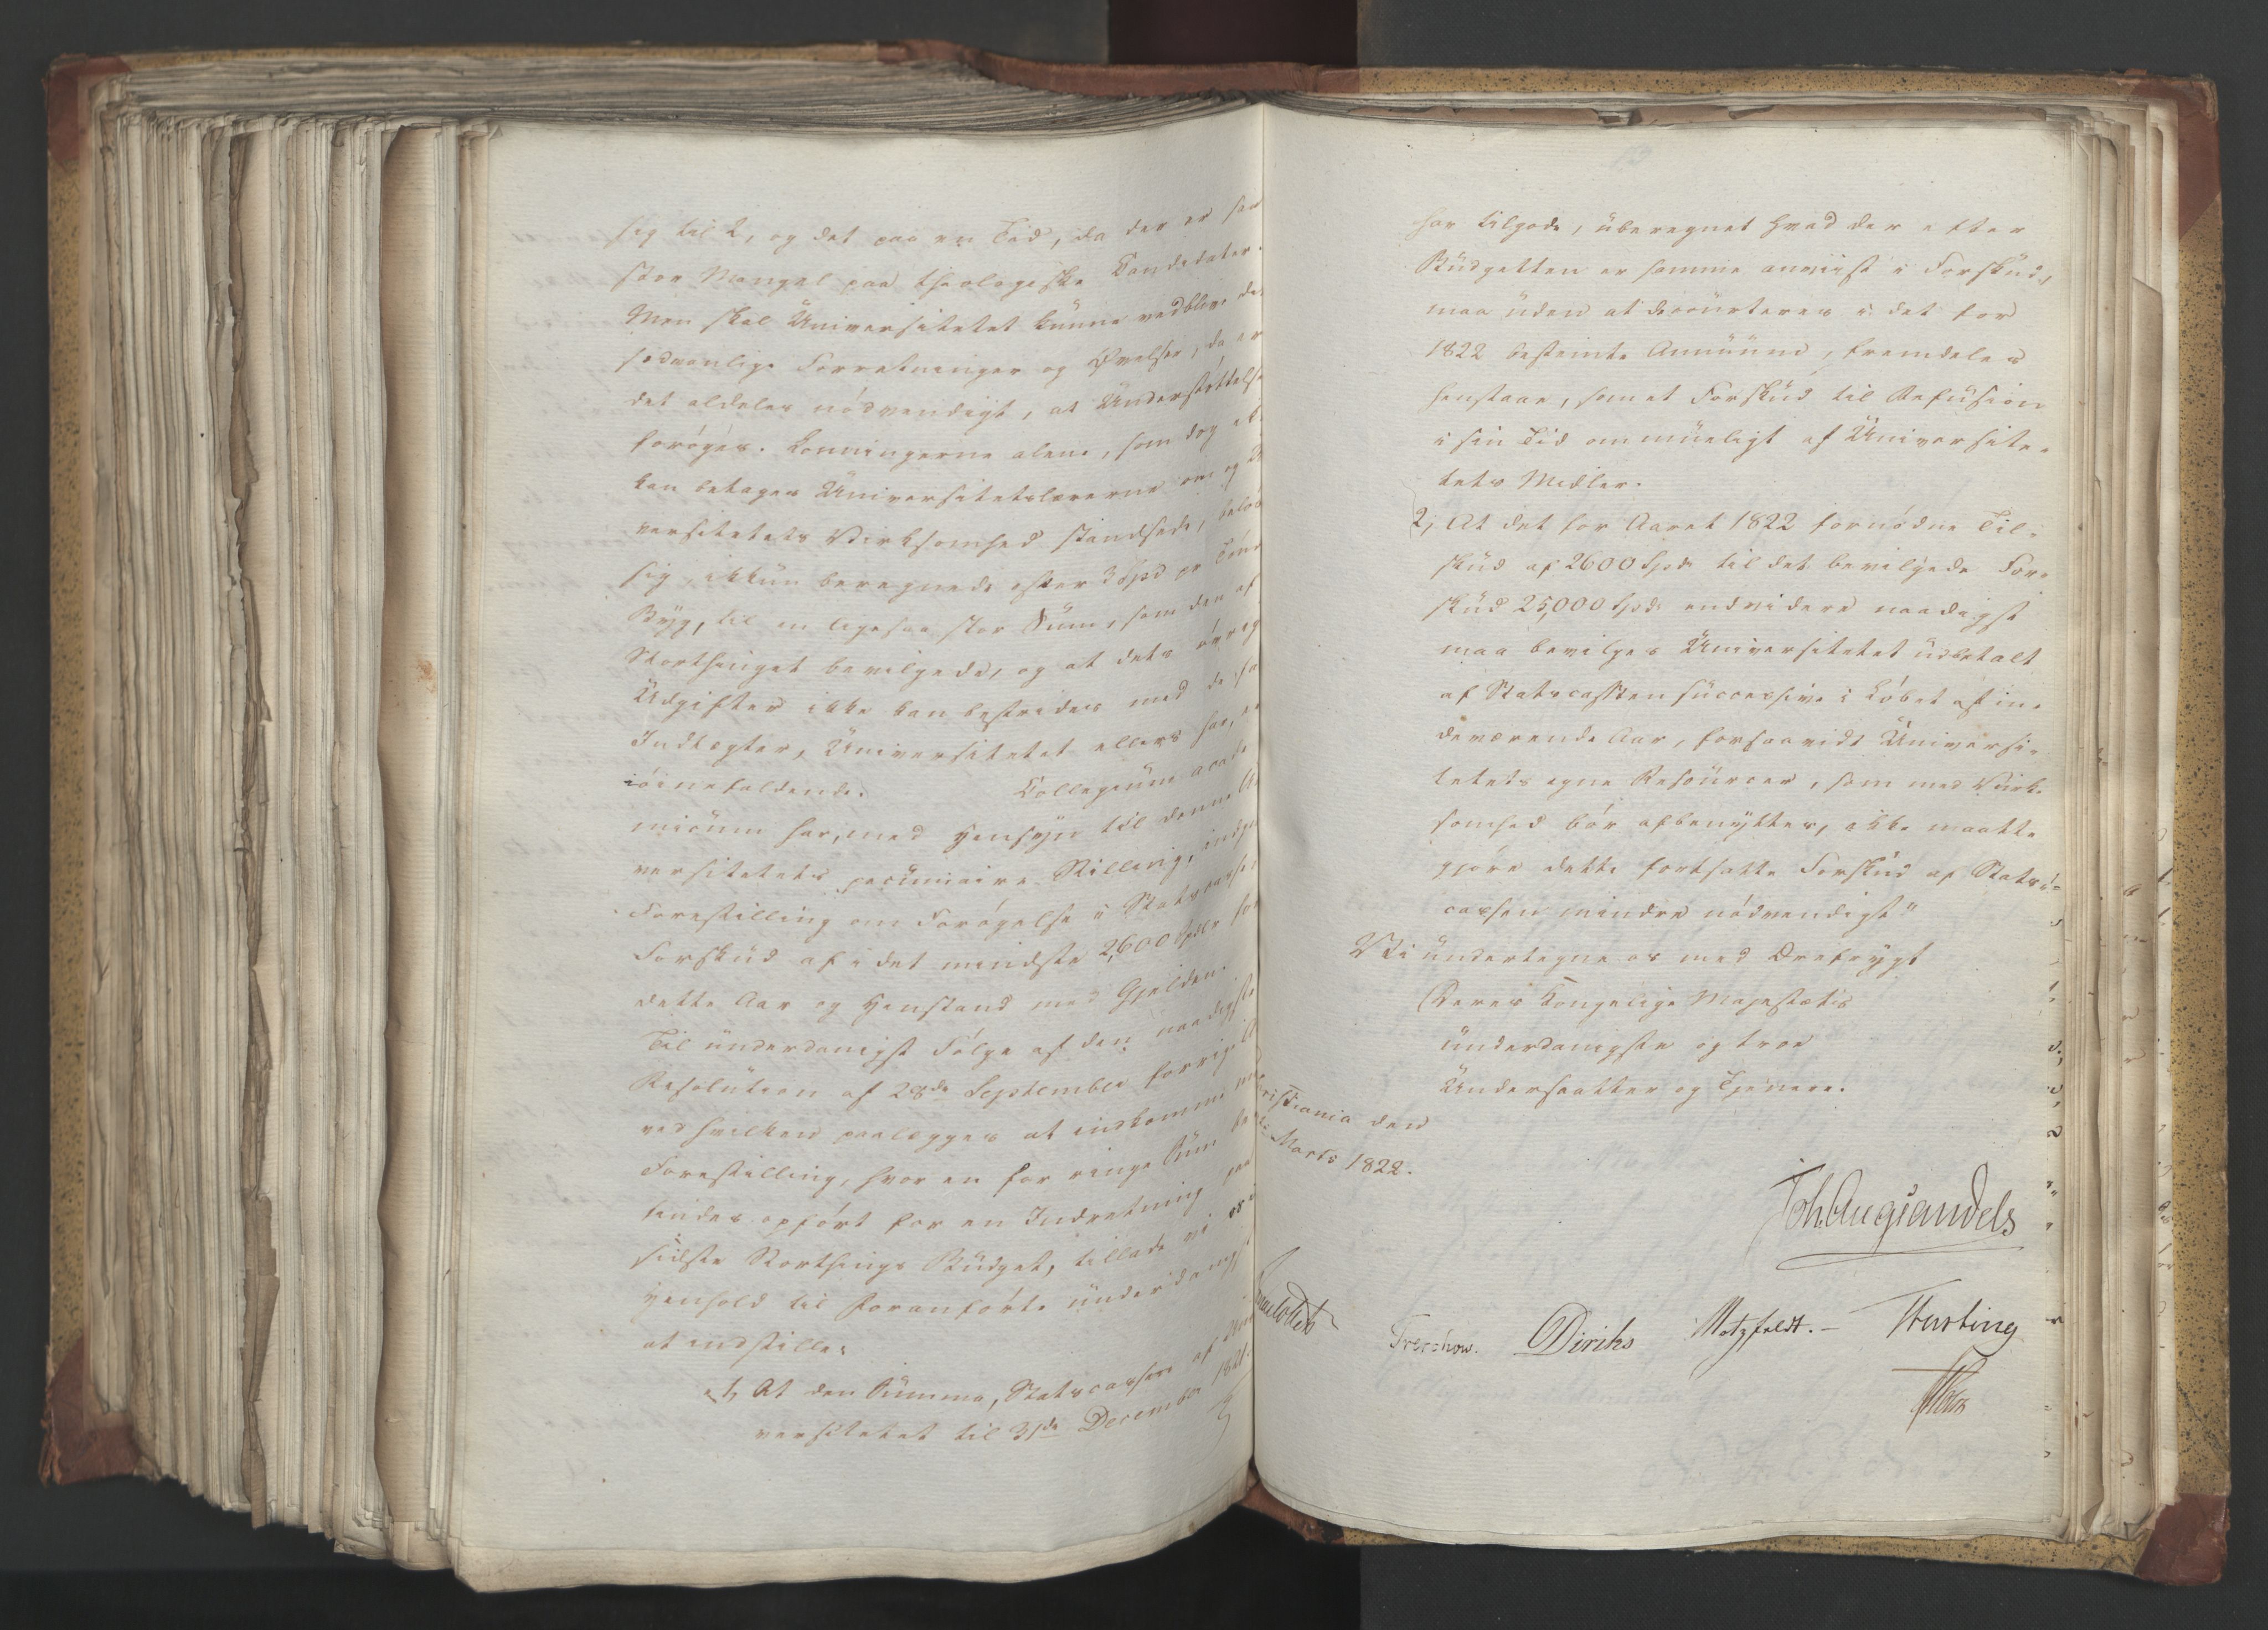 sig til 2, og det paa en Tid, da der er saa
stor Mangel paa theologiske Candidater.
Men skal Universitetet kunne vedblive de
sædvanlige Forretninger og Øvelser, da er
det aldeles nódvendigt, at Understóttelse
forøges. Lønningerne alene, som dog ei
kan betages Universitetslærerne om og
versitetets Virksomhed standsede, belób
sig, ikkun beregnede efter 3 Spd pr Tønd
Byg, til en ligesaa stor Sum, som den af
Storthinget bevilgede, og at dets óvrig
Udgifter ikke kan bestrides med de
Indtægter, Universitetet ellers har, er
ióinefaldende. Collegium acade
micum har, med Hensyn til denne Uni
versitetets pecuniaire Stilling, indgi
Forestilling om Forógelse i Statscassens
Forskud af i det mindste 2,600 Spdlr for
dette Aar og Henstand med Gjelden.
Til underdanigst Fólge af den naadigste
Resolution af 28de September forrige A
ved hvilken paalægges at indkomme med
Forestilling, hvor en for ringe Sum be
findes opfórt for en Indretning paa
sidste Storthings Budget, tillade vi os i
Henhold til Foranfórte underdanigst
at indstille:
"1, At den Summa, Statscassen af Uni
versitetet til 31de December 1821.
har tilgode, uberegnet hvad der efter
Budgetten er samme anviist i Forskud,
maa uden at decourteres i det for
1822 bestemte Annuum, fremdeles
henstaae, som et Forskud til Refusion
i sin Tid om mueligt af Universite-
tets Midler.
2, At det for Aaret 1822 fornódne Til-
skud af 2600 Spd. til det bevilgede For-
skud 25,000 Spd. endvidere naadigst
maa bevilges Universitetet udbetalt
af Statscassen successive i Lóbet af in-
deværende Aar, forsaavidt Universi-
tetets egne Resourcer, som med Virk-
somhed bór afbenyttes, ikke maatte
gjóre dette fortsatte Forskud af Stats-
cassen mindre nódvendigt."
Vi undertegne os med Ærefrygt
Deres Kongelige Majestæts
underdanigste og troe
Undersaatter og Tjenere.
Christiania den
Marts 1822.
Joh. Aug. Sandels
Collett
Treschow. Diriks Motzfeldt. Fasting
Holst